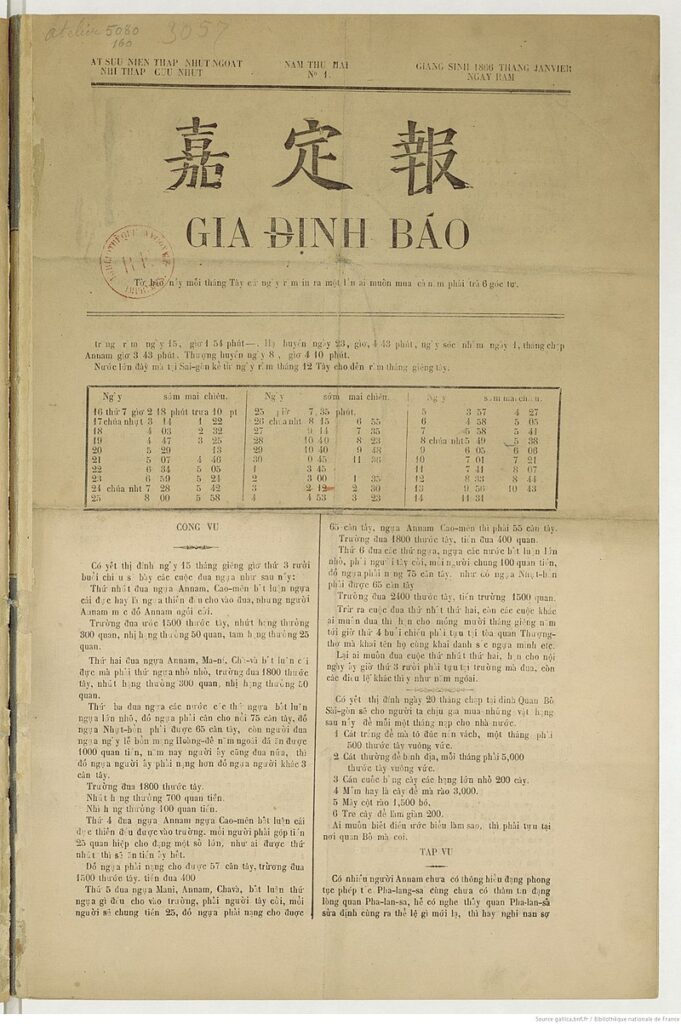 atelier 5080
160
3057
AT SUU NIEN THAP NHUT NGOAT
NHI THAP CUU NHUT
NAM THU HAI
Nº 1.
GIANG SINH 1866 THANG JANVIER
NGAY RAM
嘉定報
GIA ĐỊNH BÁO
Tờ báo nầy mỗi tháng Tây cứ ngày rằm in ra một lần ai muốn mua cả năm phải trả 6 góc tư.
trăng rằm ngày 15, giờ 1 54 phút—. Hạ huyền ngày 23, giờ, 4 43 phút, ngày sóc nhằm ngày 1, tháng chạp
Annam giờ 3 43 phút. Thượng huyền ngày 8, giờ 4 10 phút.
Nước lớn đầy mà tại Saì-gòn kể từ ngày rằm tháng 12 Tây cho đến rằm tháng giêng tây.
Ngày sớm mai chiều.
16 thứ 7 giờ 2 18 phút trưa 10 pt
17 chúa nhựt 3 14 1 22
18 4 03 2 32
19 4 47 3 25
20 5 29 13
21 5 07 4 46
22 6 34 5 05
23 6 59 5 24
24 chúa nht 7 28 5 42
25 8 00 5 58
Ngày sớm mai chiều.
25 giờ 7 35 phút.
26 chúa nht 8 15 6 55
27 9 14 7 35
28 10 40 8 23
29 10 40 9 48
30 0 45 11 36
1 3 45
2 3 00 1 35
3 2 12 2 30
4 4 53 3 23
Ngày sớm mai chiều.
5 3 57 4 27
6 4 58 5 05
7 5 58 5 41
8 chúa nht 5 49 5 38
9 6 05 6 06
10 7 01 7 21
11 7 41 8 07
12 8 33 8 44
13 9 56 10 43
14 11 31
CÔNG VỤ
Có yết thị định ngày 15 tháng giêng giờ thứ 3 rưởi
buổi chiều sẽ bày các cuộc đua ngựa như sau nầy:
Thứ nhứt đua ngựa Annam, Cao-mên bất luận ngựa
cái đực hay là ngựa thiến đều cho vào đua, nhưng người
Annam mặc đồ Annam ngồi cởi.
Trường đua ước 1500 thước tây, nhứt hạng thưởng
300 quan, nhị hạng thưởng 50 quan, tam hạng thưởng 25
quan.
Thứ hai đua ngựa Annam, Ma-ní, Chà-và bất luận cái
đực mà phải thứ ngựa nhỏ nhỏ, trường đua 1800 thước
tây, nhứt hạng thưởng 300 quan, nhị hạng thưởng 50
quan.
Thứ ba đua ngựa các nước các thứ ngựa bất luận
ngựa lớn nhỏ, đồ ngựa phải cân cho nổi 75 cân tây, đồ
ngựa Nhựt-bổn phải được 65 cân tây, còn người đua
ngựa ngày lễ bổn mạng Hoàng-đế năm ngoái đã ăn được
1000 quan tiền, năm nay người ấy cũng đua nữa, thì
đồ ngựa người ấy phải nặng hơn đồ ngựa người khác 3
cân tây.
Trường đua 1800 thước tây.
Nhứt hạng thưởng 700 quan tiền.
Nhì hạng thưởng 100 quan tiền.
Thứ 4 đua ngựa Annam ngựa Cao-mên bất luận cái
đực thiến đều được vào trường. mỗi người phải góp tiền
25 quan hiệp cho đặng một số lớn, như ai được thứ
nhứt thì sẽ ăn tiền ấy hết.
Đồ ngựa phải nặng cho được 57 cân tây, trừơng đua
1500 thước tây. tiền đua 400
Thứ 5 đua ngựa Mani, Annam, Chavà, bất luận thứ
ngựa gì đều cho vào trường, phải người tây cỡi, mỗi
người sẽ chung tiền 25, đồ ngựa phải nặng cho được
65 cân tây, ngựa Annam Cao-mên thì phải 55 cân tây.
Trường đua 1800 thước tây, tiền đua 400 quan.
Thứ 6 đua các thứ ngựa, ngựa các nước bất luận lớn
nhỏ, phải người tây cỡi, mỗi người chung 100 quan tiền,
đồ ngựa phải nặng 75 cân tây. như có ngựa Nhựt-bổn
phải được 65 cân tây
Trường đua 2400 thước tây, tiền trường 1500 quan.
Trừ ra cuộc đua thứ nhứt thứ hai, còn các cuộc khác
ai muốn đua thì hẹn cho mồng mười tháng giêng nầm
tới giờ thứ 4 buổi chiều phải tựu tại tòa quan Thượng-
thơ mà khai tên họ cùng khai danh sắc ngựa mình etc.
Lại ai muốn đua cuộc thứ nhứt thứ hai, hẹn cho nội
ngày ấy giờ thứ 3 rưởi phải tựu tại trường mà đua, còn
các điều lệ khác thì y như năm ngoái.
Có yết thị định ngày 20 tháng chạp tại dinh Quan Bố
Sài-gòn sẽ cho người ta chịu gia mua những vật hạng
sau nầy để mỗi một tháng nạp cho nhà-nước.
1 Cát trắng để mà tô đúc nên vách, một tháng phải
500 thước tây vuông vức.
2 Cát thường để bình địa, mỗi tháng phải 5,000
thước tây vuông vức.
3 Cán cuốc bằng cây các hạng lớn nhỏ 200 cây.
4 Mầm hay là cây để mà rào 3,000.
5 Mây cột rào 1,500 bó.
6 Tre cây để làm giàn 200.
Ai muốn biết điều ước biểu làm sao, thì phải tựu tại
nơi quan Bố mà coi.
TẠP VỤ
Có nhiều người Annam chưa có thông hiểu đặng phong
tục phép tắc Pha-lang-sa cùng chưa có thấm tin đặng
lòng quan Pha-lan-sa, hễ có nghe thấy quan Pha-lan-sa
sửa định cùng ra thể lệ gì mới lạ, thì hay nghi nan sợ
Source gallica.bnf.fr / Bibliothèque nationale de France